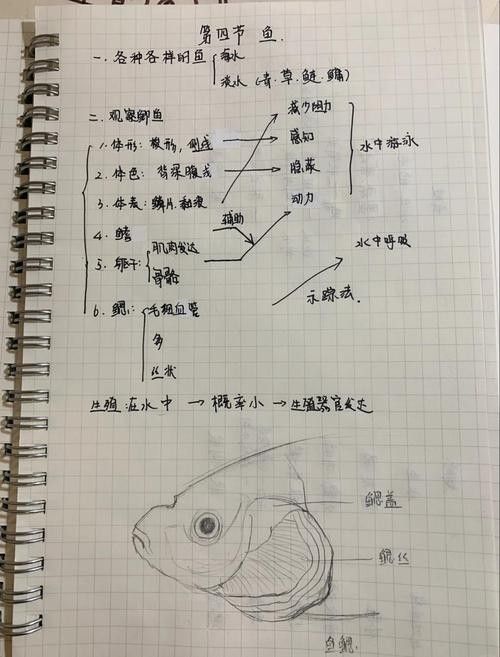 第四节 鱼.
一.各种各样的鱼 海水
淡水(青.草.鲢.鳙)
二.观察鲫鱼
减少阻力
1.体形:梭形,侧线
感知
水中游泳
2.体色:背深腹浅
隐蔽
3.体表:鳞片.黏液
动力
4.鳍
辅助
5.躯干:肌肉发达
骨骼
水中呼吸
6.鳃:毛细血管
示踪法.
多
丝状
生殖:在水中→概率小→生殖器官发达
鳃盖
鳃丝
鱼鳃.